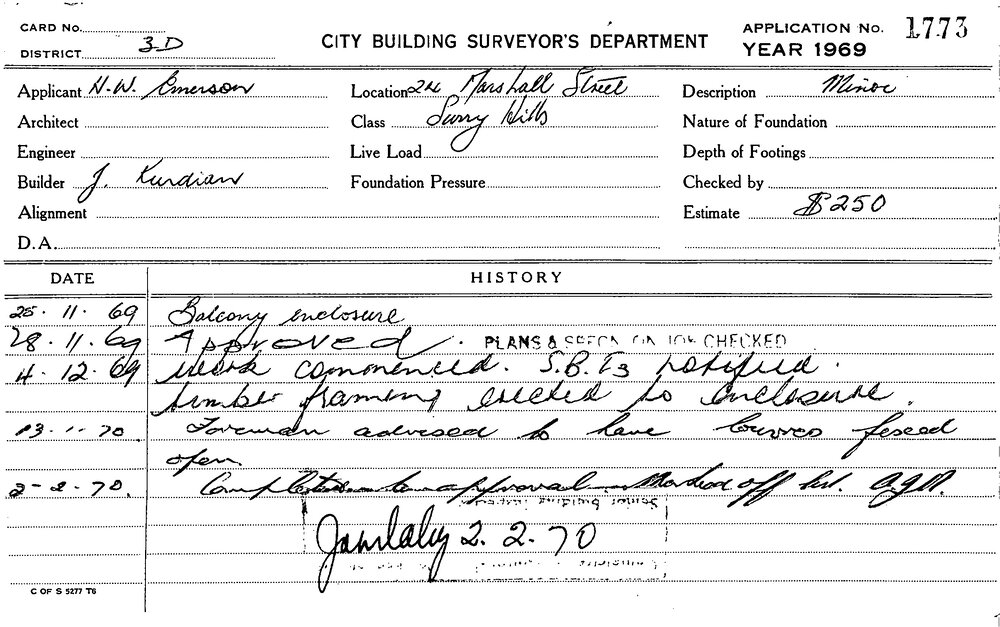 CARD No.
DISTRICT 3D
CITY BUILDING SURVEYOR'S DEPARTMENT
APPLICATION No. 1773
YEAR 1969
Applicant H.W. Emerson
Location 24 Marshall Street
Description Minor
Architect
Class Surry Hills
Nature of Foundation
Engineer
Live Load
Depth of Footings
Builder J. Kurdian
Foundation Pressure
Checked by
Alignment
Estimate $250
D.A.
DATE HISTORY
25.11.69 Balcony enclosure
28.11.69 Approved. PLANS & SPECN ON JOB CHECKED
4.12.69 Work commenced. S.B.I3 notified.
timber framing erected to enclosure.
13.1.70 Foreman advised to have louvres fixed
open
2-2-70. Completed to approval. Marked off list.
2.2.70
C OF S 5277 T6